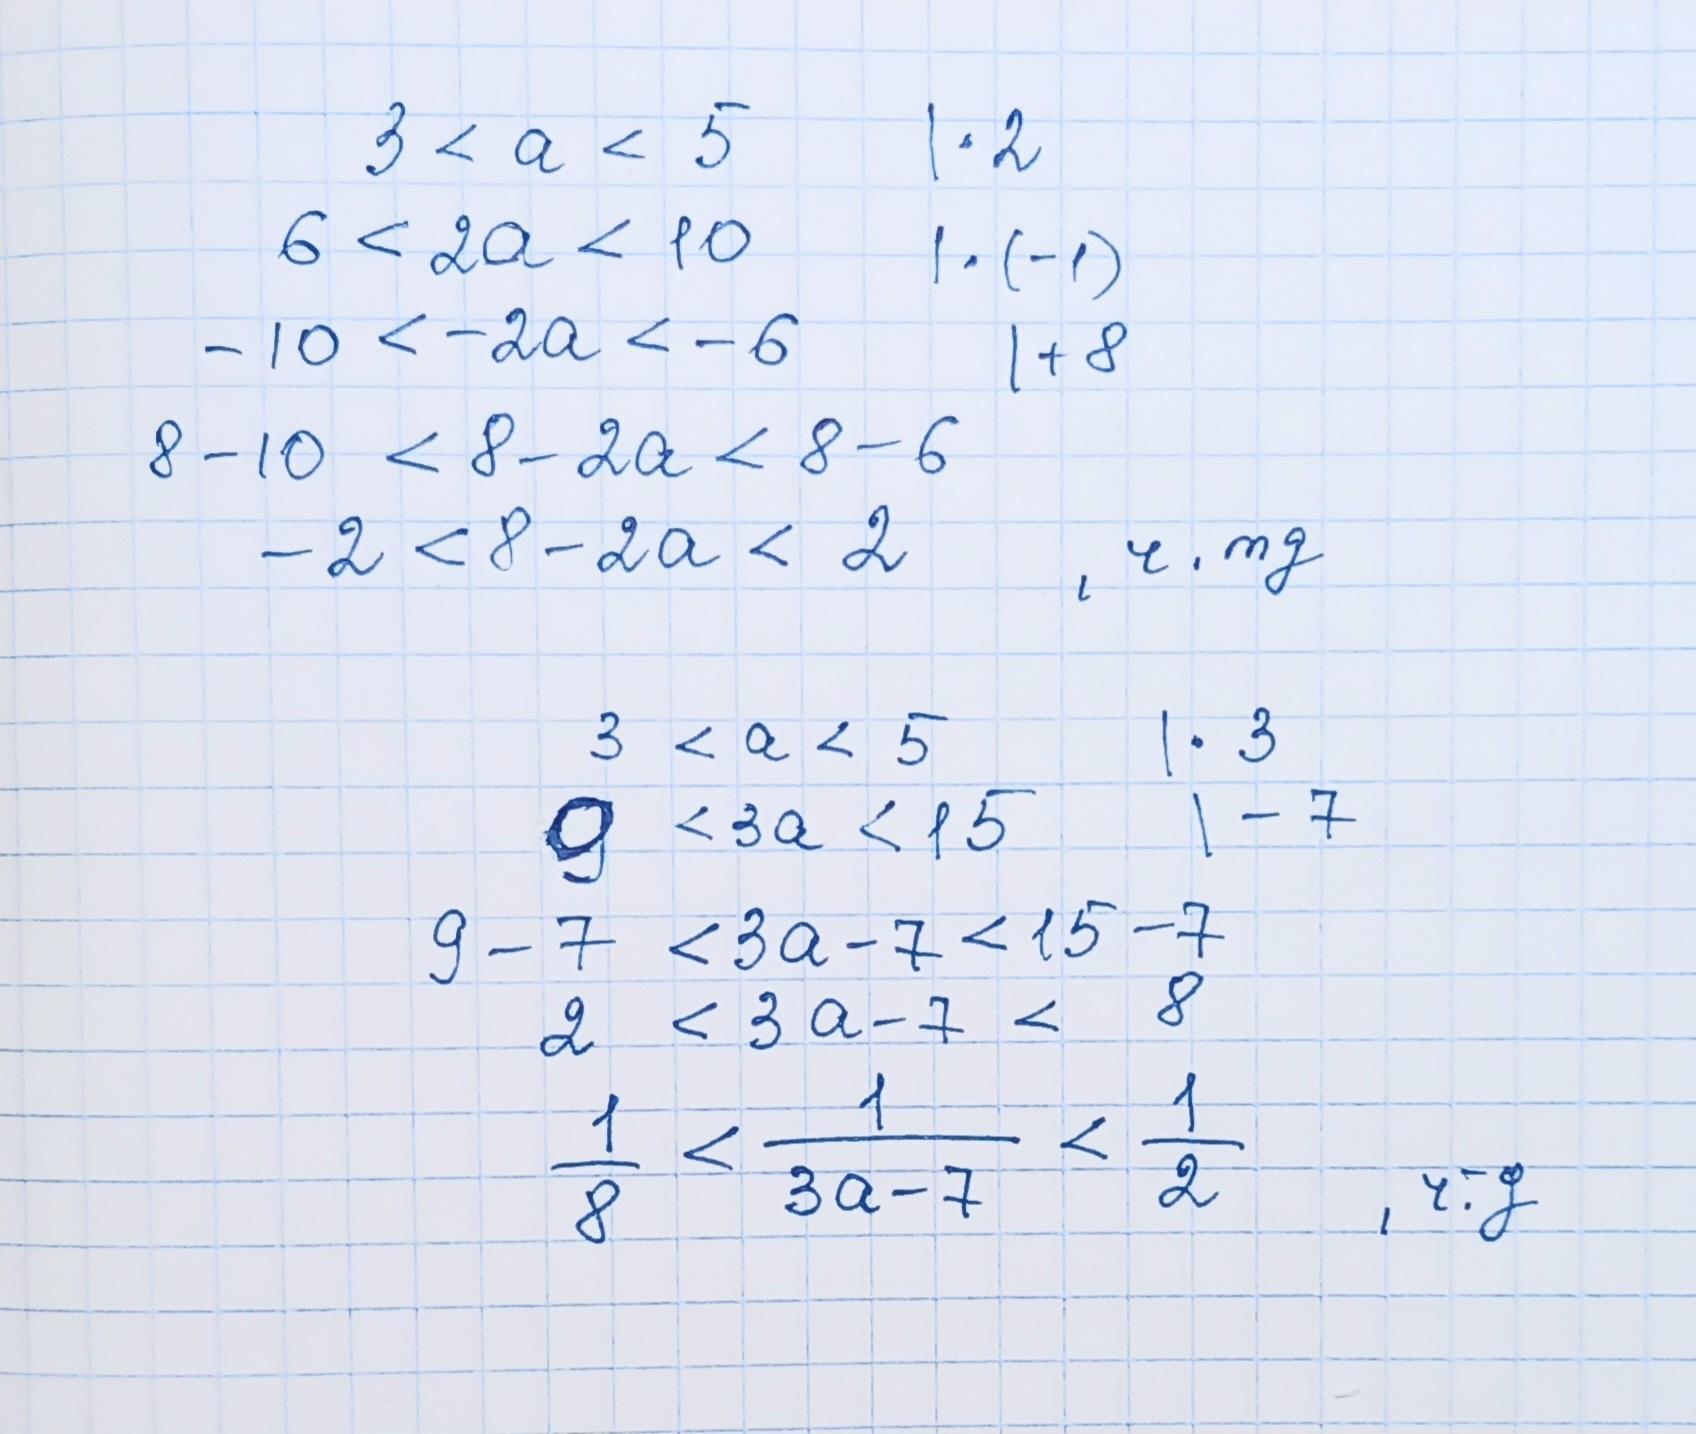 3 < a < 5 | · 2
6 < 2a < 10 | · (-1)
-10 < -2a < -6 | + 8
8 - 10 < 8 - 2a < 8 - 6
-2 < 8 - 2a < 2 , ч. тд
3 < a < 5 | · 3
9 < 3a < 15 | - 7
9 - 7 < 3a - 7 < 15 - 7
2 < 3a - 7 < 8
1/8 < 1/(3a - 7) < 1/2 ,